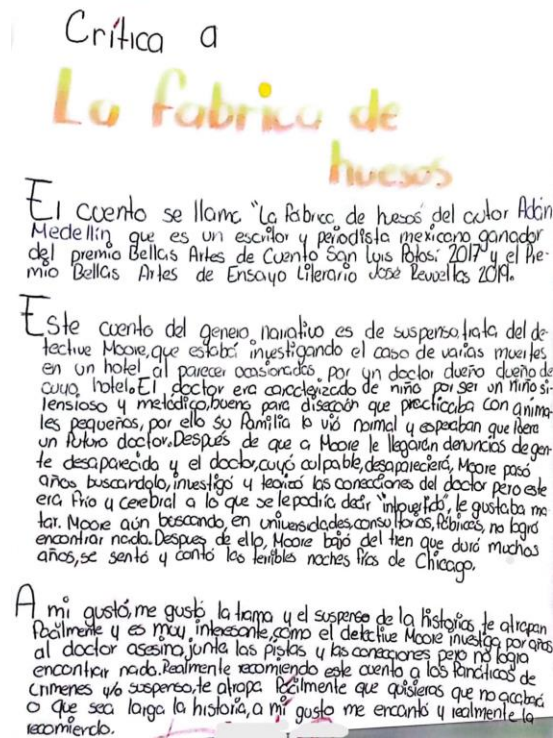 Crítica a
La fabrica de
huesos
El cuento se llama "La fabrica de huesos" del autor Adán
Medellín que es un escritor y periodista mexicano ganador
del premio Bellas Artes de Cuento San Luis Potosí 2017 y el Pre-
mio Bellas Artes de Ensayo Literario José Revueltas 2019.
Este cuento del genero narrativo es de suspenso, trata del de-
tective Moore, que estaba investigando el caso de varias muertes
en un hotel al parecer ocasionadas, por un doctor dueño dueño de
cuyo hotel. El doctor era caracterizado de niño por ser un niño si-
lensioso y metódico, bueno para disección que practicaba con anima-
les pequeños, por ello su familia lo vió normal y esperaban que fuera
un futuro doctor. Después de que a Moore le llegarán denuncias de gen-
te desaparecida y el doctor, cuyó culpable, desapareciera, Moore pasó
años buscandolo, investigó y teorizó las conecciones del doctor pero este
era frio y cerebral a lo que se le podría decir "intovertido", le gustaba ma-
tar. Moore aún buscando, en universidades, consultorios, fábricas, no logró
encontrar nada. Después de ello, Moore bajó del tren que duró muchos
años, se sentó y contó las terribles noches frías de Chicago.
A mi gustó, me gustó la trama y el suspenso de la historias, te atrapan
facilmente y es muy interesante, como el detective Moore investiga por años
al doctor asesino, junta las pistas y las conecciones pero no logra
encontrar nada. Realmente recomiendo este cuento a los fanáticos de
crimenes y/o suspenso, te atrapa fácilmente que quisieras que no acabará
o que sea larga la historia, a mi gusto me encantó y realmente la
recomiendo.